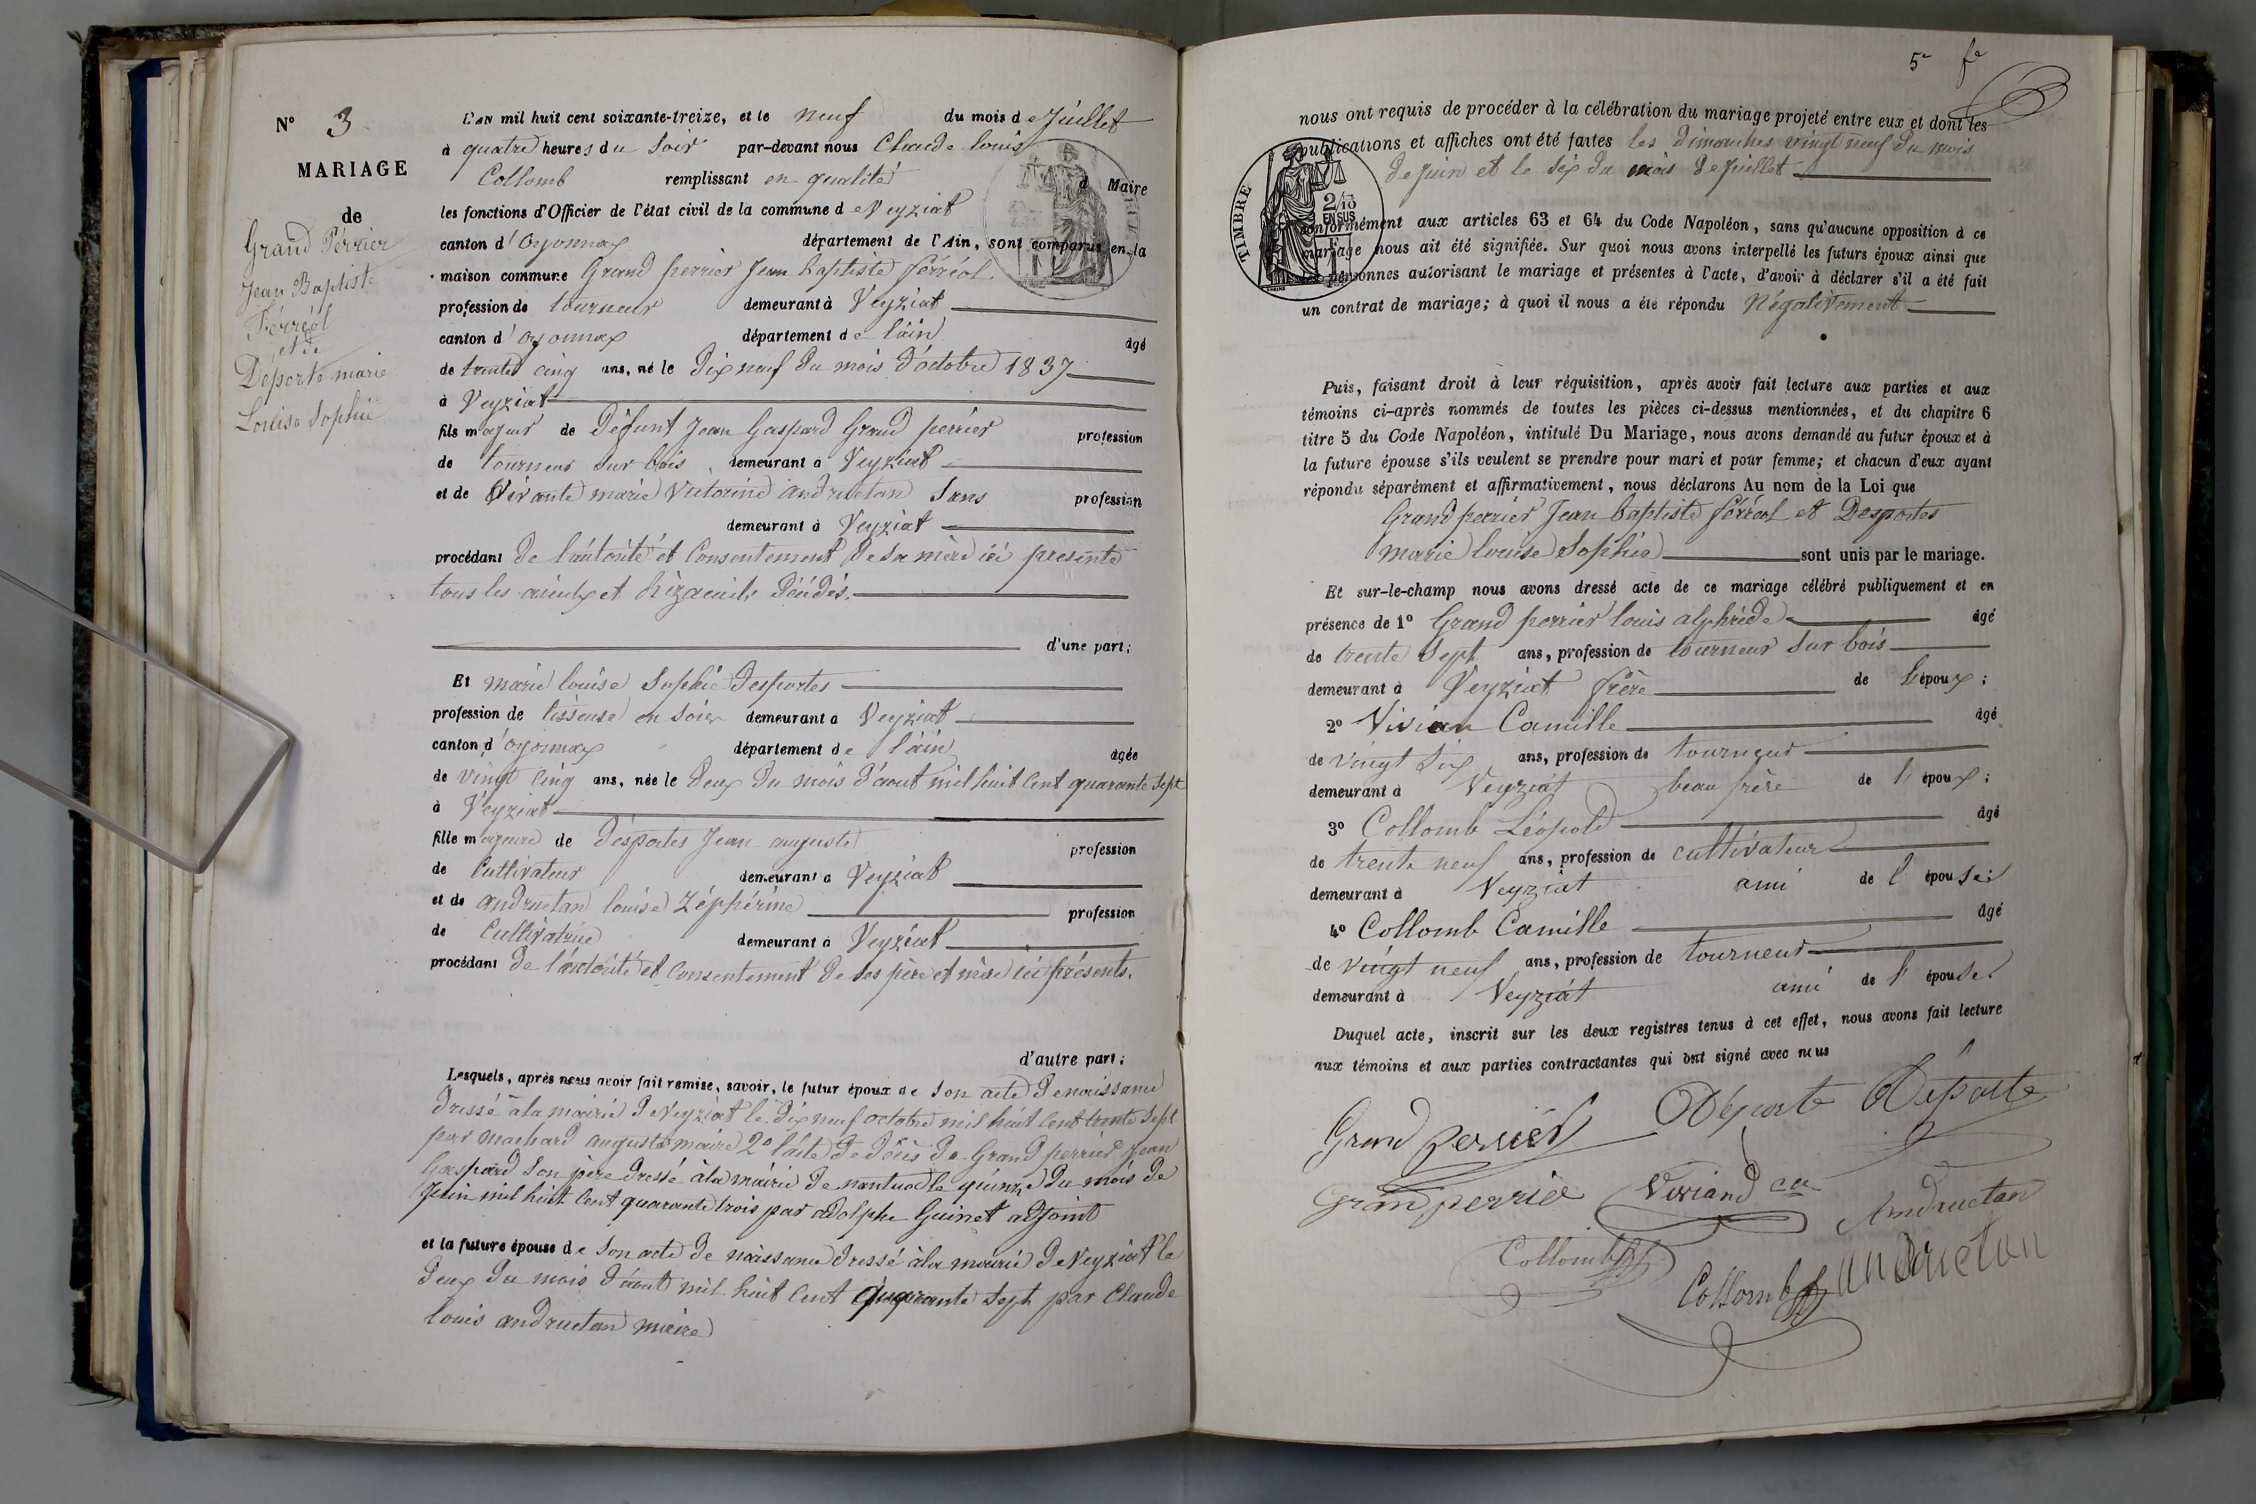 N° 3
MARIAGE
de
Grand Perrier
Jean Baptiste
Férréol
et de
Déporte marie
Louise Sophie
L'AN mil huit cent soixante-treize, et le neuf du mois de Juillet
à quatre heures du Soir par-devant nous Claude louis
Collomb remplissant en qualité d Maire
les fonctions d'Officier de l'état civil de la commune de Veyziat
canton d'oyonnax département de l'Ain, sont comparus en la
maison commune Grand perrier Jean baptiste férréol
profession de tourneur demeurant à Veyziat
canton d'oyonnax département de láin âgé
de trente cinq ans, né le Dix neuf du mois d'octobre 1837
à Veyziat
fils majeur de Défunt Jean Gaspard Grand perrier profession
de tourneur sur bois demeurant à Veyziat
et de Vivante marie Victorine andruetan Sans profession
demeurant à Veyziat
procédant De láutorité et Consentement De Sa mère ici présente
tous les aieulx et bizaieuls Décédés.
d'une part;
Et marie louise Sophie Desportes
profession de tisseuse en Soies demeurant à Veyziat
canton d'oyonnax département de láin âgée
de vingt cinq ans, née le Deux Du mois d'aout mil huit Cent quarante Sept
à Veyziat
fille majeure de Désportes Jean auguste profession
de Cultivateur demeurant à Veyziat
et de andruetan louise Zéphérine profession
de Cultivatrice demeurant à Veyziat
procédant De láutorité et Consentement De Ses père et mère ici présents.
d'autre part;
Lesquels, après nous avoir fait remise, savoir, le futur époux de Son acte De naissance
Dressé à la mairie De Veyziat le Dix neuf octobre mil huit Cent trente Sept
par machard auguste maire 2° láte De Décès De Grand perrier Jean
Gaspard Son père Dressé à la mairie De nantua le quinze Du mois De
Juin mil huit Cent quarante trois par adolphe Guinet adjoint
et la future épouse de Son acte De naissance Dressé à la mairie De Veyziat le
Deux Du mois D'aout mil huit Cent quarante Sept par Claude
louis andruetan maire
5e fe
nous ont requis de procéder à la célébration du mariage projeté entre eux et dont les
publications et affiches ont été faites les Dimanches vingt neuf Du mois
De juin et le Six Du mois De Juillet
TIMBRE
2/10
EN SUS
conformément aux articles 63 et 64 du Code Napoléon, sans qu'aucune opposition à ce
mariage nous ait été signifiée. Sur quoi nous avons interpellé les futurs époux ainsi que
les personnes autorisant le mariage et présentes à l'acte, d'avoir à déclarer s'il a été fait
un contrat de mariage; à quoi il nous a été répondu Négativement
Puis, faisant droit à leur réquisition, après avoir fait lecture aux parties et aux
témoins ci-après nommés de toutes les pièces ci-dessus mentionnées, et du chapitre 6
titre 5 du Code Napoléon, intitulé Du Mariage, nous avons demandé au futur époux et à
la future épouse s'ils veulent se prendre pour mari et pour femme; et chacun d'eux ayant
répondu séparément et affirmativement, nous déclarons Au nom de la Loi que
Grand perrier Jean baptiste férréol et Desportes
marie louise Sophie sont unis par le mariage.
Et sur-le-champ nous avons dressé acte de ce mariage célébré publiquement et en
présence de 1° Grand perrier louis alphrède âgé
de trente Sept ans, profession de tourneur Sur bois
demeurant à Veyziat frère de L'époux;
2° Vivian Camille âgé
de vingt Six ans, profession de tourneur
demeurant à Veyziat beau frère de l'époux;
3° Collomb Léopold âgé
de trente neuf ans, profession de cultivateur
demeurant à Veyziat ami de l'épouse;
4° Collomb Camille âgé
de vingt neuf ans, profession de tourneur
demeurant à Veyziat ami de l'épouse.
Duquel acte, inscrit sur les deux registres tenus à cet effet, nous avons fait lecture
aux témoins et aux parties contractantes qui ont signé avec nous
Grand perrier Déporte Déporte
Grandperrier Viviand Andruetan
Collomb
Collomb andruetan